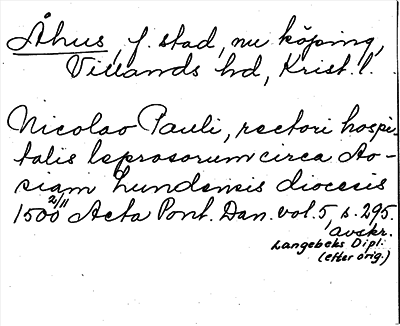 Åhus, f. stad, nu köping,
Villands hd, Krist. l.
Nicolao Pauli, rectori hospi-
talis leprosorum circa Ao-
siam Lundensis diocesis
1500 21/11 Acta Pont. Dan. vol. 5, s. 295.
avskr.
Langebeks Dipl.
(efter orig.)